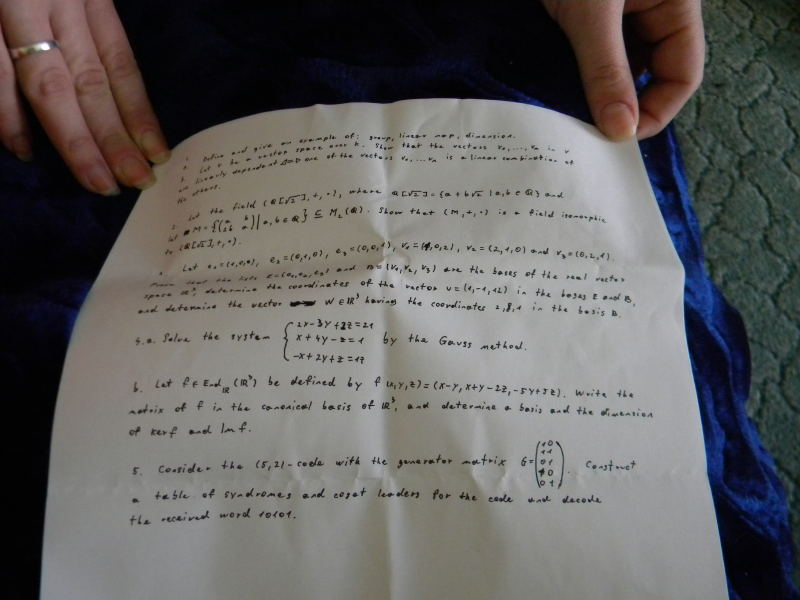 1. Define and give an example of: group, linear map, dimension.
Let V be a vector space over K. Show that the vectors v₁,...,vₙ in V
are linearly dependent ⇔ one of the vectors v₁,...,vₙ is a linear combination of
the others.
2. Let the field (Q[√2],+,·), where Q[√2]={a+b√2 |a,b∈Q} and
let M={(a b; 2b a)|a,b∈Q} ⊆ M₂(Q). Show that (M,+,·) is a field isomorphic
to (Q[√2],+,·).
Let e₁=(1,0,0), e₂=(0,1,0), e₃=(0,0,1), v₁=(1,0,2), v₂=(2,1,0) and v₃=(0,2,1).
Prove that the lists E=(e₁,e₂,e₃) and B=(v₁,v₂,v₃) are the bases of the real vector
space ℝ³, determine the coordinates of the vector u=(1,-1,12) in the bases E and B,
and determine the vector w∈ℝ³ having the coordinates 2,8,1 in the basis B.
4.a. Solve the system {2x-3y+3z=21
x+4y-z=1
-x+2y+z=17 by the Gauss method.
b. Let f∈End_ℝ(ℝ³) be defined by f(x,y,z)=(x-y,x+y-2z,-5y+5z). Write the
matrix of f in the canonical basis of ℝ³, and determine a basis and the dimension
of Kerf and Imf.
5. Consider the (5,2)-code with the generator matrix G=(10
11
01
10
01). Construct
a table of syndromes and coset leaders for the code and decode
the received word 10101.